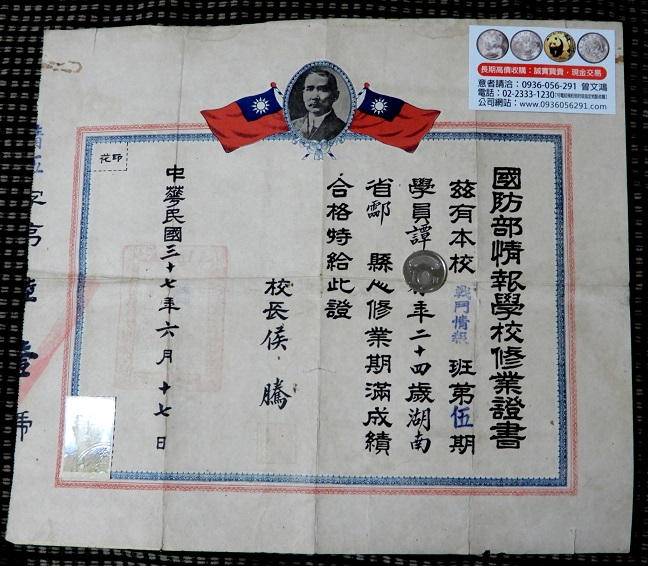 國防部情報學校修業證書
茲有本校戰鬥情報班第伍期
學員譚 年二十四歲湖南
省酃縣人修業期滿成績
合格特給此證
校長侯騰
中華民國三十七年六月十七日
印花
字第 壹號
長期高價收購：誠實買賣・現金交易
意者請洽：0936-056-291 曾文鴻
電話：02-2333-1230
公司網站：www.0936056291.com